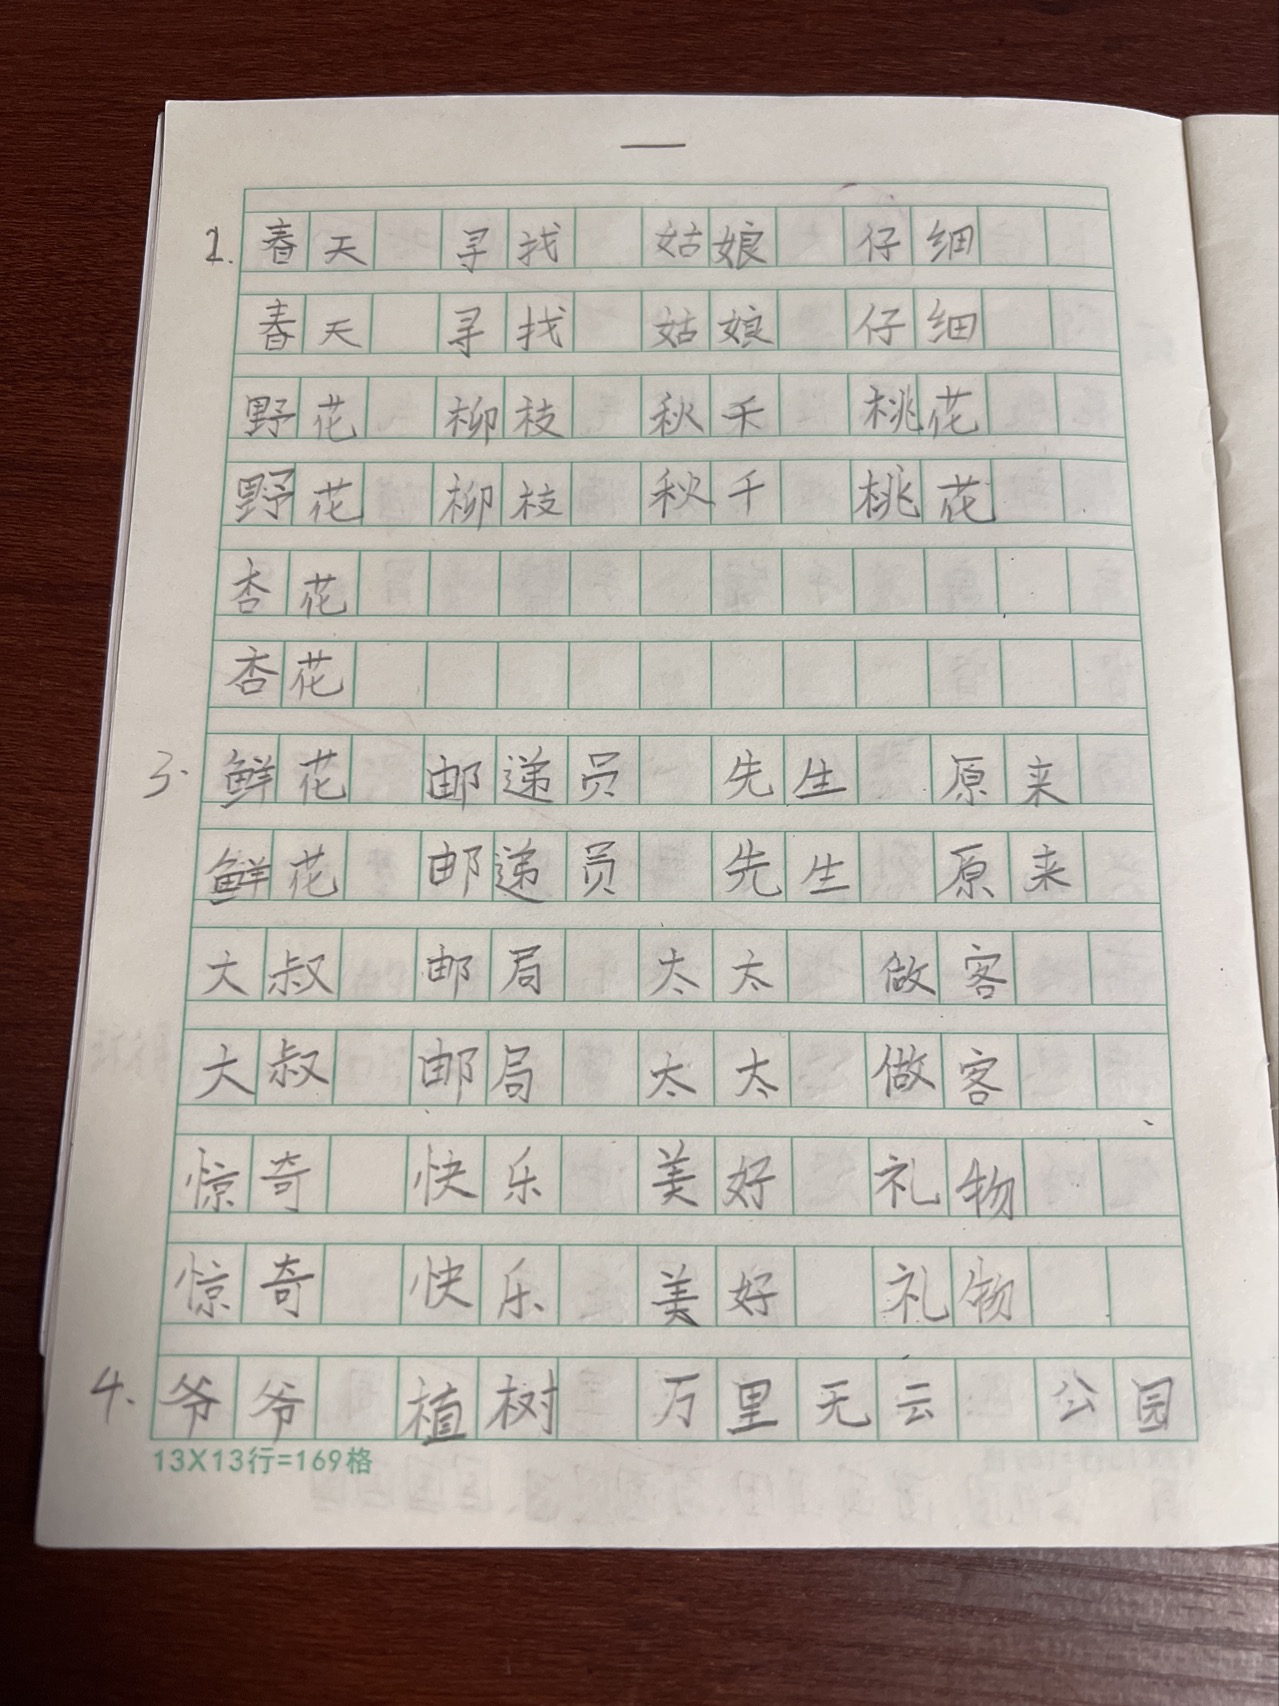 一
2. 春天 寻找 姑娘 仔细
春天 寻找 姑娘 仔细
野花 柳枝 秋千 桃花
野花 柳枝 秋千 桃花
杏花
杏花
3. 鲜花 邮递员 先生 原来
鲜花 邮递员 先生 原来
大叔 邮局 太太 做客
大叔 邮局 太太 做客
惊奇 快乐 美好 礼物
惊奇 快乐 美好 礼物
4. 爷爷 植树 万里无云 公园
13X13行=169格